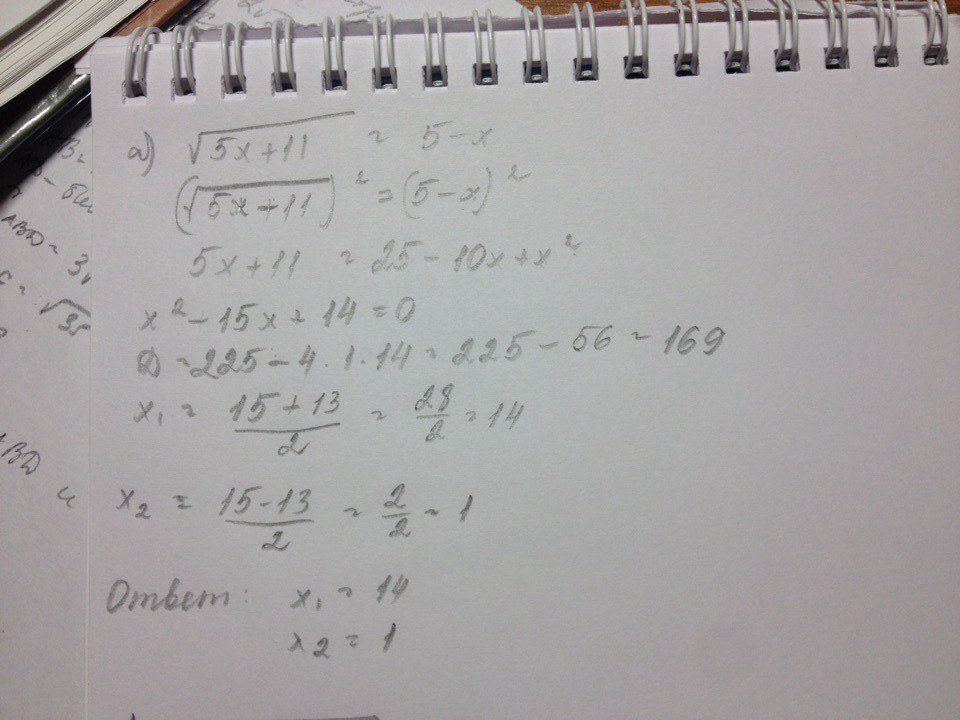 а) √5x+11 = 5-x
(√5x+11)² = (5-x)²
5x+11 = 25-10x+x²
x²-15x+14=0
D=225-4·1·14=225-56=169
x₁ = 15+13/2 = 28/2 = 14
x₂ = 15-13/2 = 2/2 = 1
Ответ: x₁ = 14
x₂ = 1
ABD = 3
ABD